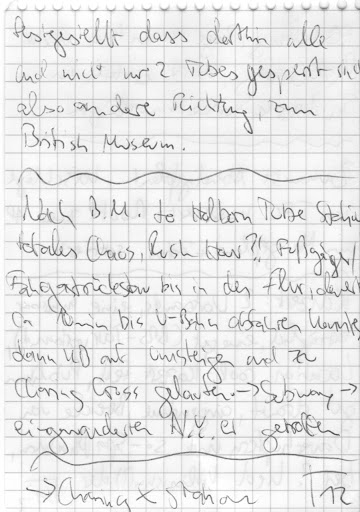 festgestellt dass dorthin alle
und nicht nur 2 Tubes gesperrt sind
also andere Richtung, zum
British Museum.
Nach B.M. to Holborn Tube Station
totales Chaos, Rush Hour?! Fußgänger/
bis in den Flur, dauert
ca min bis U-Bahn abfahren konnte,
dann umsteigen und zu
Charing Cross gelaufen → Subway →
eingewanderten N.Y. er getroffen
→ Charing X Station